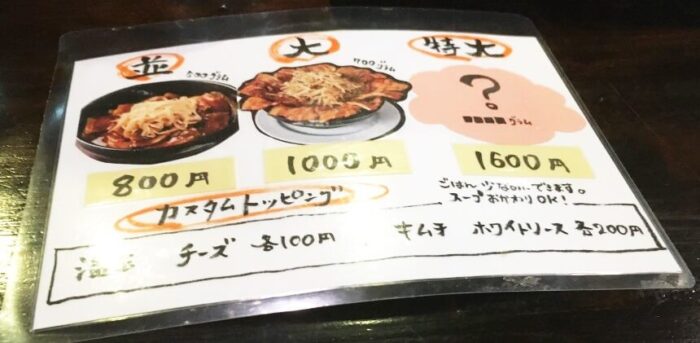 並 大 特大
500グラム 700グラム
?
■■■■グラム
800円 1000円 1600円
ごはん少なめ、できます。
スープおかわりOK!
カスタムトッピング
チーズ 各100円 キムチ ホワイトソース 各200円